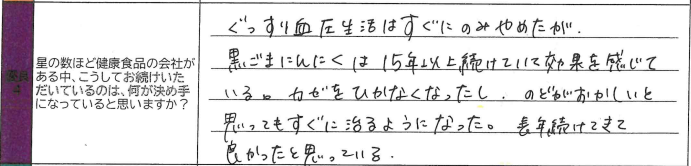 星の数ほど健康食品の会社が
ある中、こうしてお続けいた
だいているのは、何が決め手
になっていると思いますか？
ぐっすり血圧生活はすぐにのみやめたが、
黒ごまにんにくは15年以上続けていて効果を感じて
いる。カゼをひかなくなったし、のどがおかしいと
思ってもすぐに治るようになった。長年続けてきて
良かったと思っている。